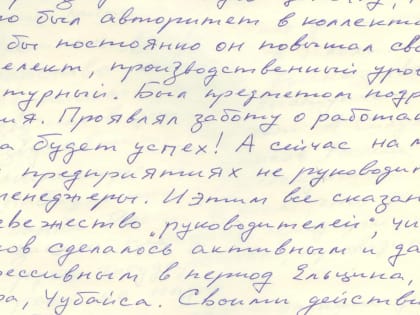 о был авторитет в коллекти
бы постоянно он повышал сво
елект, производственный уро
турный. Был предметом подр
ия. Проявлял заботу о работаю
а будет успех! А сейчас на м
предприятиях не руководи
менеджеры. И этим все сказан
евежество „руководителей", чи
ов сделалось активным и да
рессивным в период Ельцина,
ра, Чубайса. Своими действи